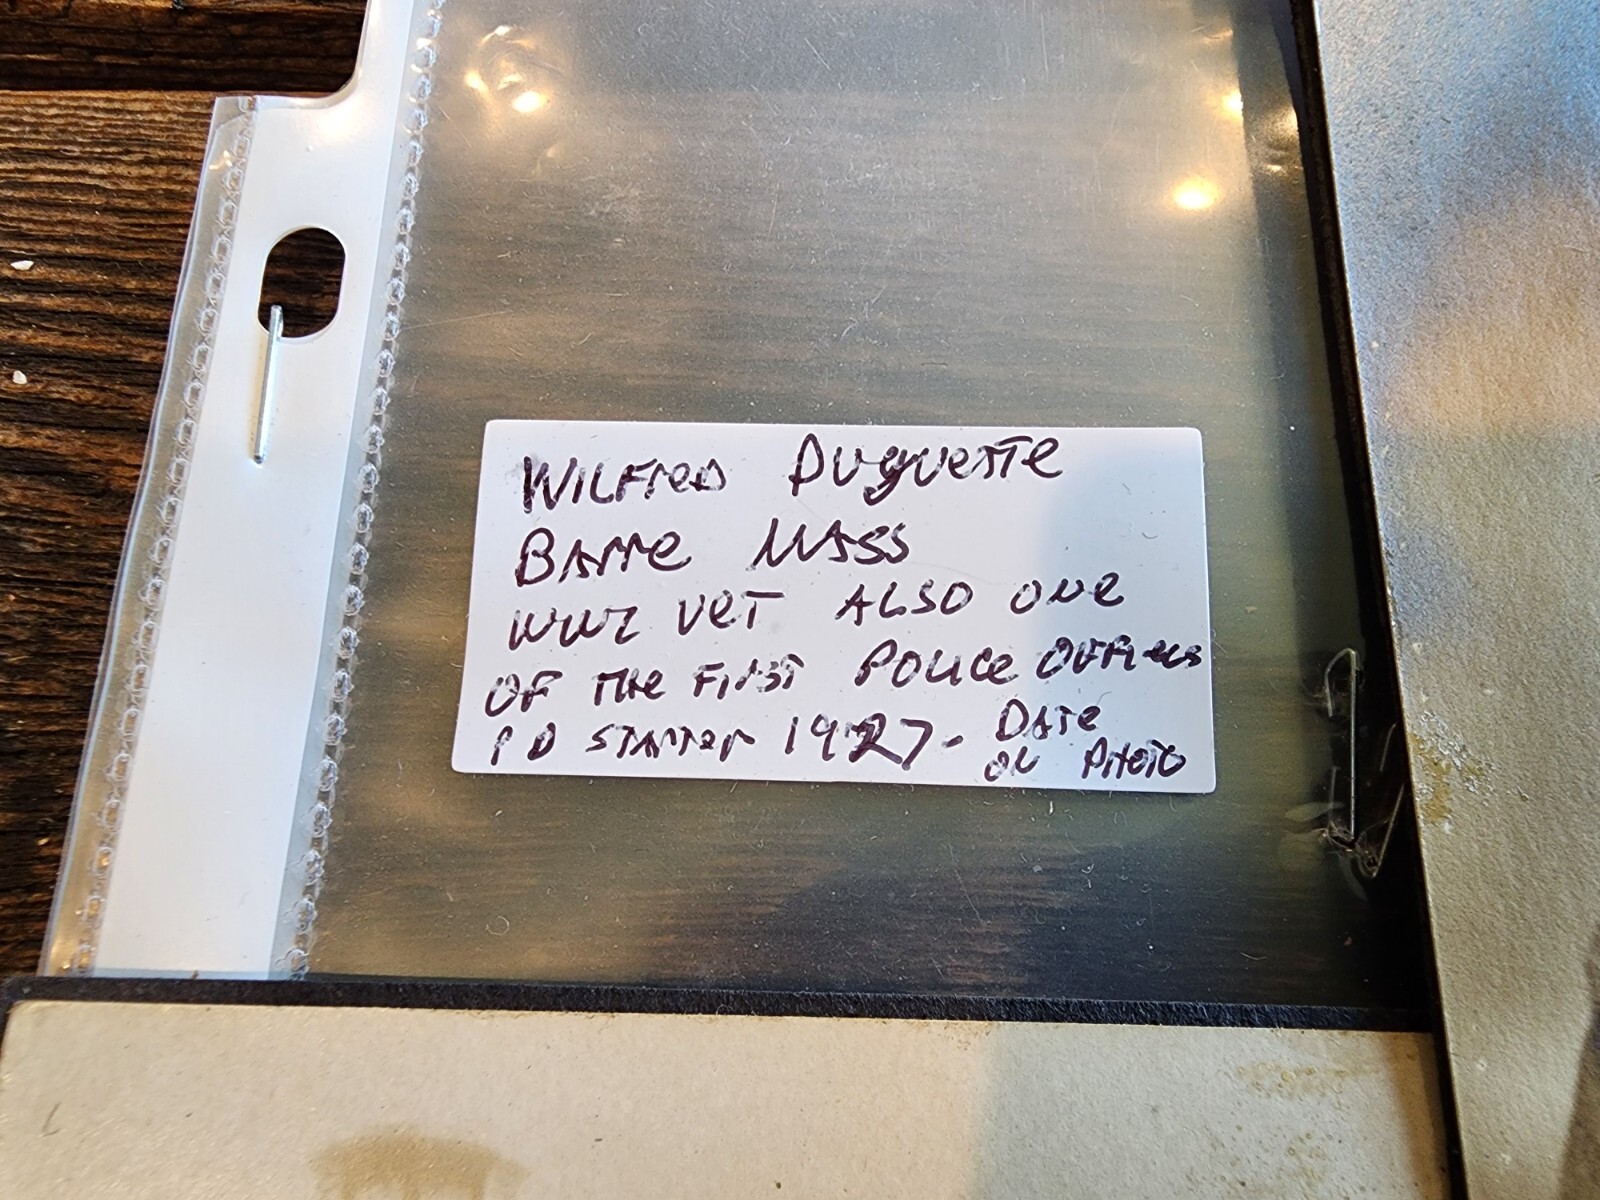 WILFreD DuGueTTe
BArre MASS
WW2 VeT ALSO ONe
OF THe FIrST POLICe OFFICerS
P D STArTeD 1927. DATe
ON PHOTO